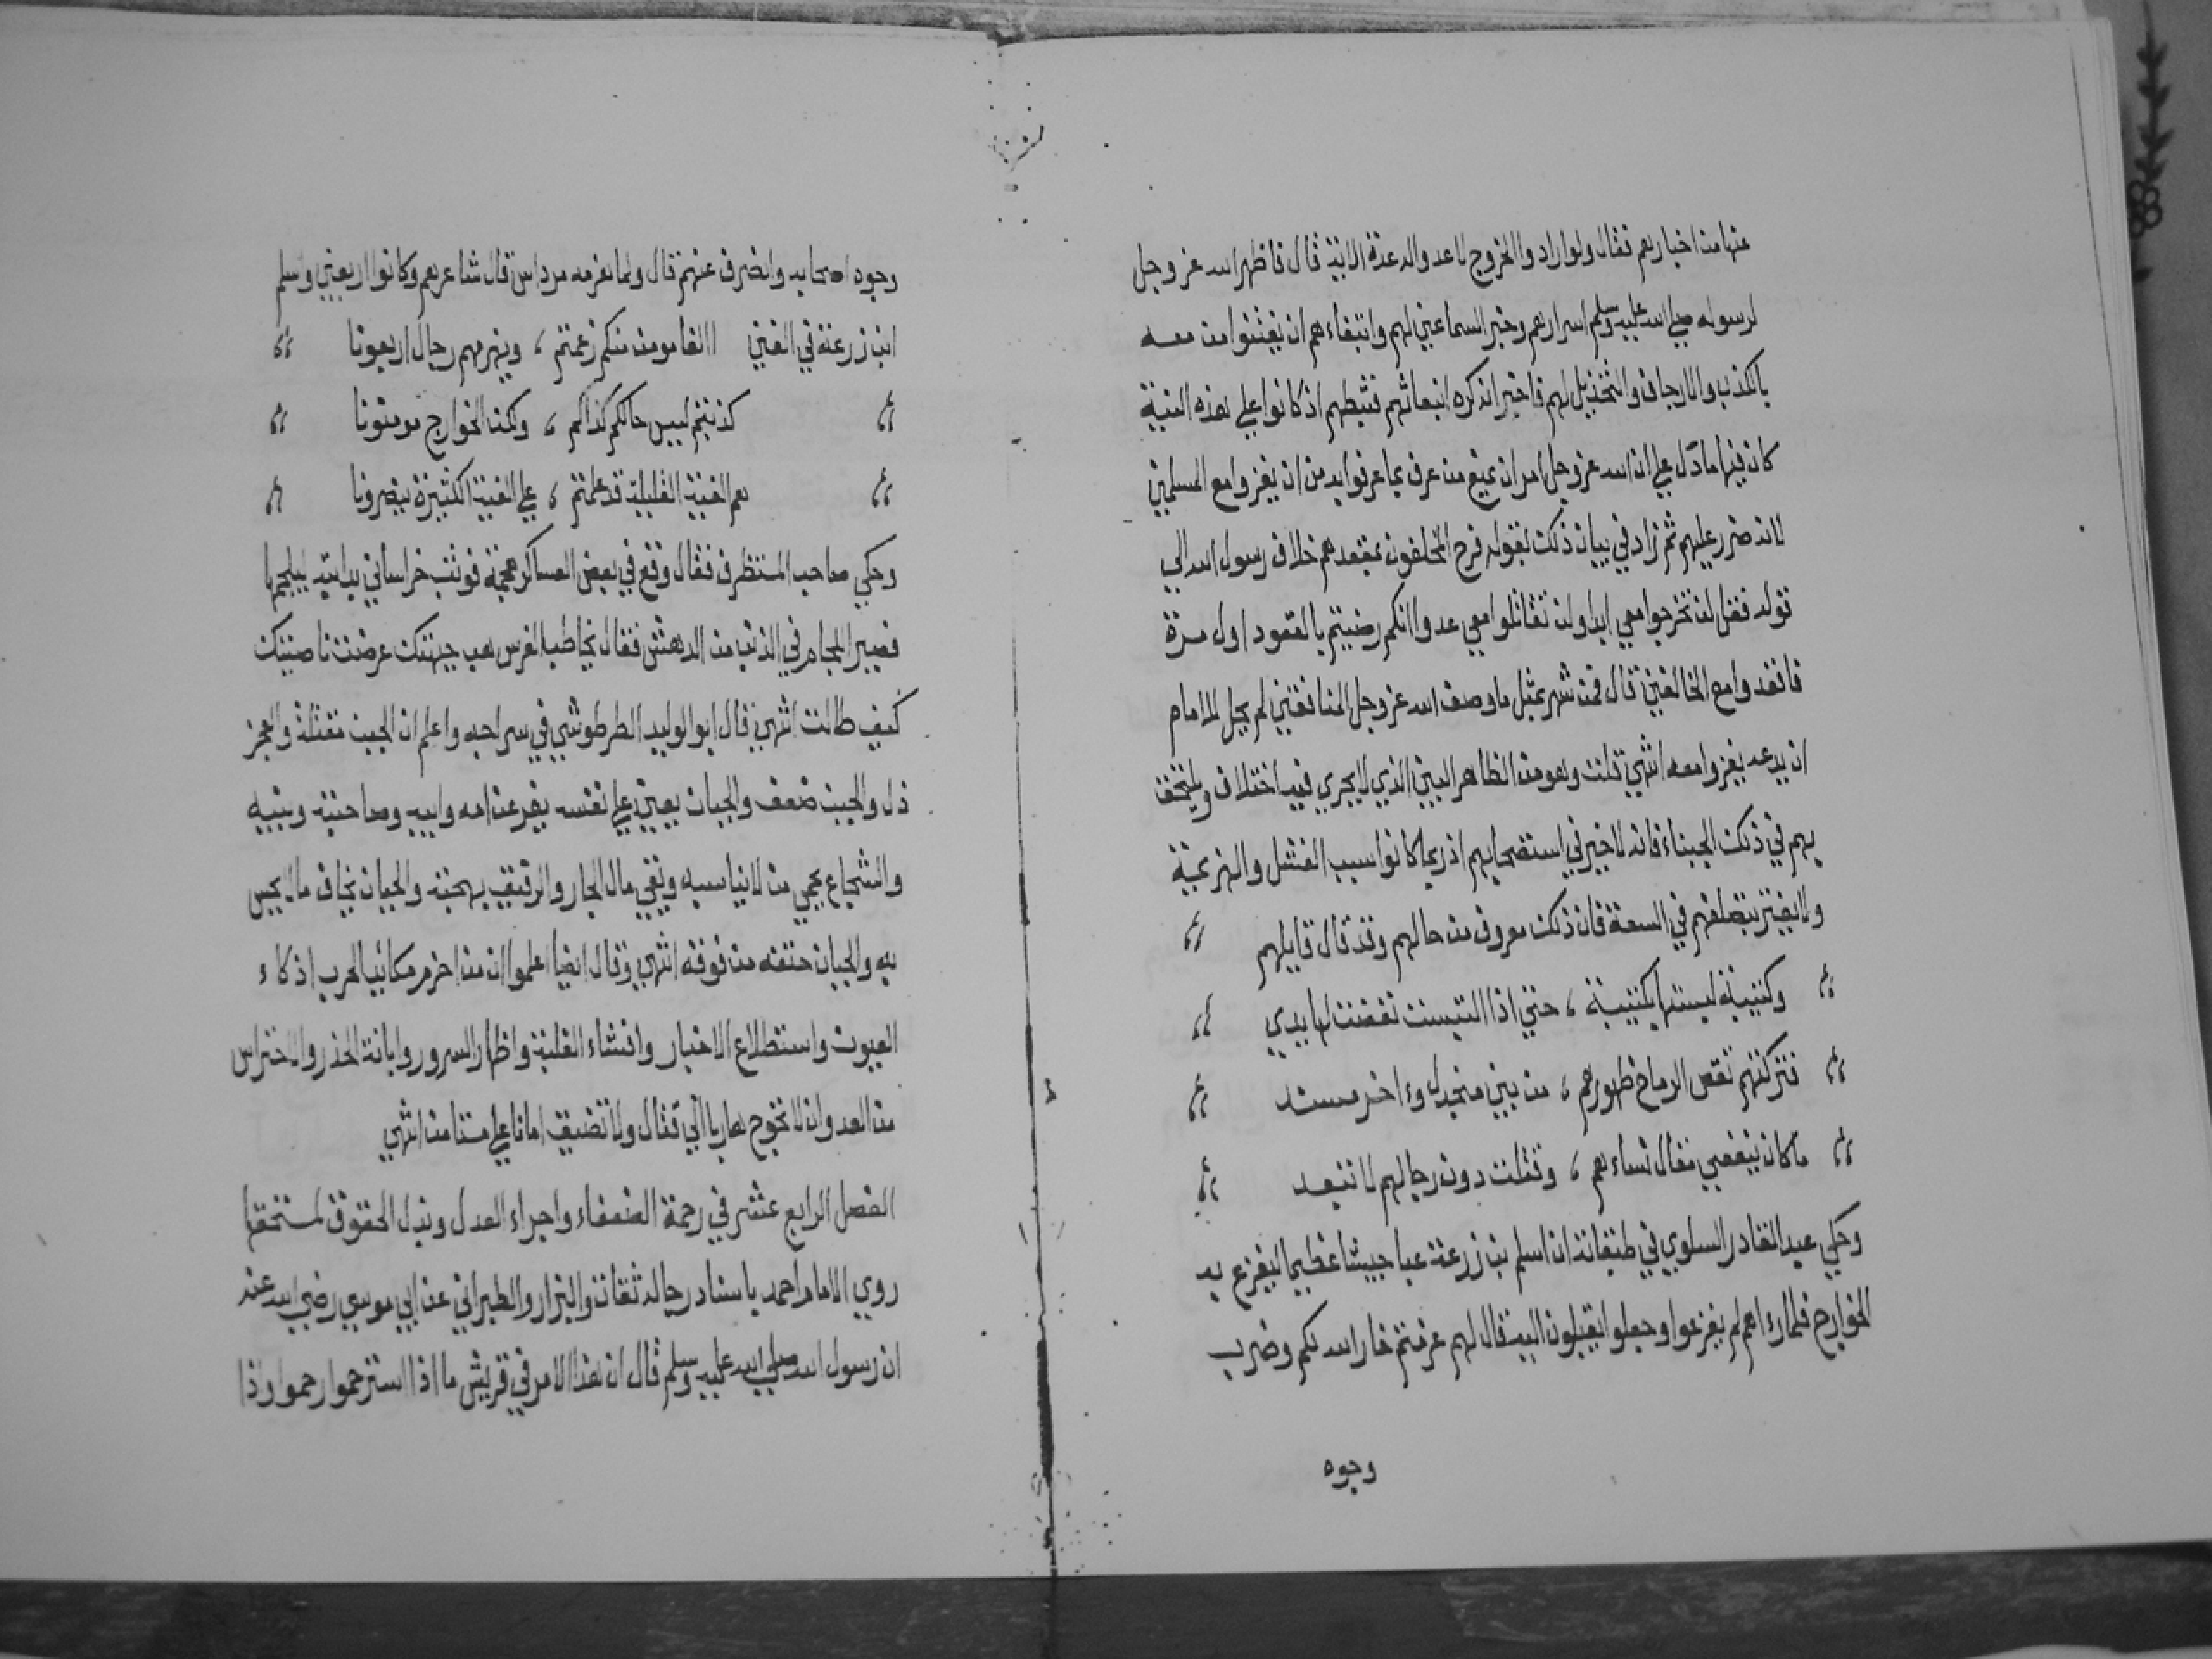 منها من اخبارهم فقال ولو ارادوا الخروج لاعدوا له عدة الاية قال فاظهر الله عز وجل
لرسوله صلى الله عليه وسلم اسرارهم وخبر السماعين لهم وابتغاءهم ان يفتنوا من معه
بالكذب والارجاف والتخذيل لهم فاخبر انه كره انبعاثهم فثبطهم اذ كانوا على هذه النية
كان فيها ما دل على ان الله عز وجل امر ان يمنع من عرف بما عرفوا به من ان يغزوا مع المسلمين
لانه ضرر عليهم ثم زاد في بيان ذلك بقوله فرح المخلفون بمقعدهم خلاف رسول الله الى
قوله فقل لن تخرجوا معي ابدا ولن تقاتلوا معي عدوا انكم رضيتم بالقعود اول مرة
فاقعدوا مع الخالفين قال فمن شهر بمثل ما وصف الله عز وجل المنافقين لم يحل للامام
ان يدعه يغزوا معه انتهى قلت وهو من الظاهر البين الذي لا يجري فيه اختلاف ويلتحق
بهم في ذلك الجبناء فانه لا خير في استصحابهم اذ ربما كانوا سبب الفشل والهزيمة
ولا يغتر بتصلفهم في السعة فان ذلك معروف من حالهم وقد قال قايلهم
وكتيبة لبستها بكتيبة ، حتى اذا التبست نفضت لها يدي
فتركتهم تقص الرماح ظهورهم ، من بين منجدل وءاخر مسند
ما كان ينفعني مقال نساءهم ، وقتلت دون رجالهم لا تبعد
وحكى عبد القادر السلوي في طبقاته ان اسلم بن زرعة عبا جيشا عظيما ليفزع به
الخوارج فلما رءاهم لم يفزعوا وجعلوا يقبلون اليه قال لهم عزمتم خار الله لكم وضرب
وجوه
وجوه اصحابه وانصرف عنهم قال ولما هزمه مرداس قال شاعرهم وكانوا اربعين واسلم
ابن زرعة في الفين االفا مومن منكم زعمتم ، ويهزمهم رجال اربعونا
كذبتم ليس حالكم كذاكم ، ولكن الخوارج مومنونا
هم الفية القليلة قد علمتم ، على الفية الكثيرة ينصرونا
وحكى صاحب المستظرف فقال وقع في بعض العساكر هجمة فوثب خراساني بدابته يلجمها
فصير اللجام في الذنب من الدهش فقال يخاطب الفرس هب جبهتك عرضت ناصيتك
كيف طالت انتهى قال ابو الوليد الطرطوشي في سراجه واعلم ان الجبن مقتلة والعجز
ذل والجبن ضعف والجبان يعين على نفسه يفر عن امه وابيه وصاحبته وبنيه
والشجاع يحمي من لا يناسبه ويقي مال الجار والرفيق بمهجته والجبان يخاف ما لا يحس
به والجبان حتفه من فوقه انتهى وقال ايضا اعلموا ان من احزم مكائيد الحرب اذكاء
العيون واستطلاع الاخبار وافشاء الغلبة واظهار السرور وابانة الحذر والاحتراس
من العدو وان لا تخوج هاربا الى قتال ولا تضيق امانا على مستامن انتهى
الفصل الرابع عشر في رحمة الضعفاء واجراء العدل وبذل الحقوق لمستحقها
روي الامام احمد باسناد رجاله ثقات والبزار والطبراني عن ابي موسى رضي الله عنه
ان رسول الله صلى الله عليه وسلم قال ان هذا الامر في قريش ما اذا استرحموا رحموا وذا